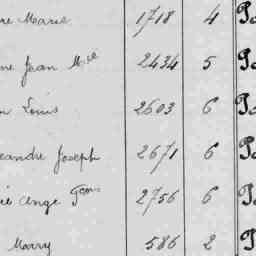 re Marie 1718 4 Pa
ne Jean Mce 2434 5 Pa
n Louis 2603 6 Pa
eandre Joseph 2671 6 Pa
ie Ange Fcois 2756 6 Pa
Marry 586 2 P